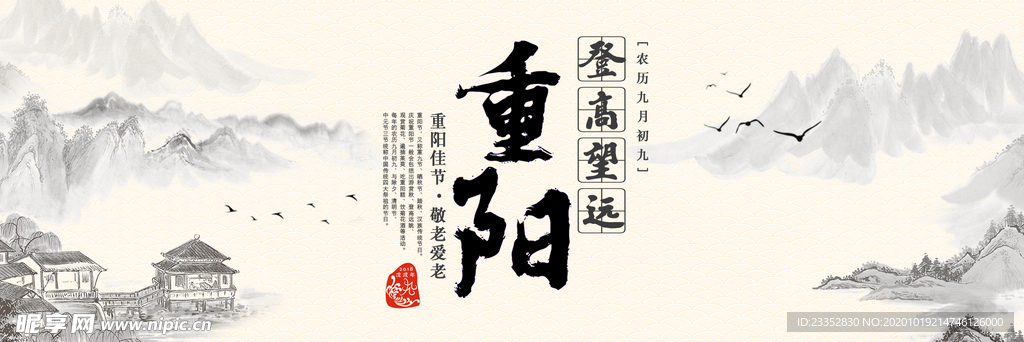 [农历九月初九]
登高望远
重阳
重阳佳节·敬老爱老
重阳节，又称重九节、晒秋节、踏秋，汉族传统节日。
庆祝重阳节一般会包括出游赏秋、登高远眺、
观赏菊花、遍插茱萸、吃重阳糕、饮菊花酒等活动。
每年的农历九月初九，与除夕、清明节、
中元节三节统称中国传统四大祭祖的节日。
2018
戊戌年
昵享网 www.nipic.cn
ID:23352830 NO:20201019214746126000